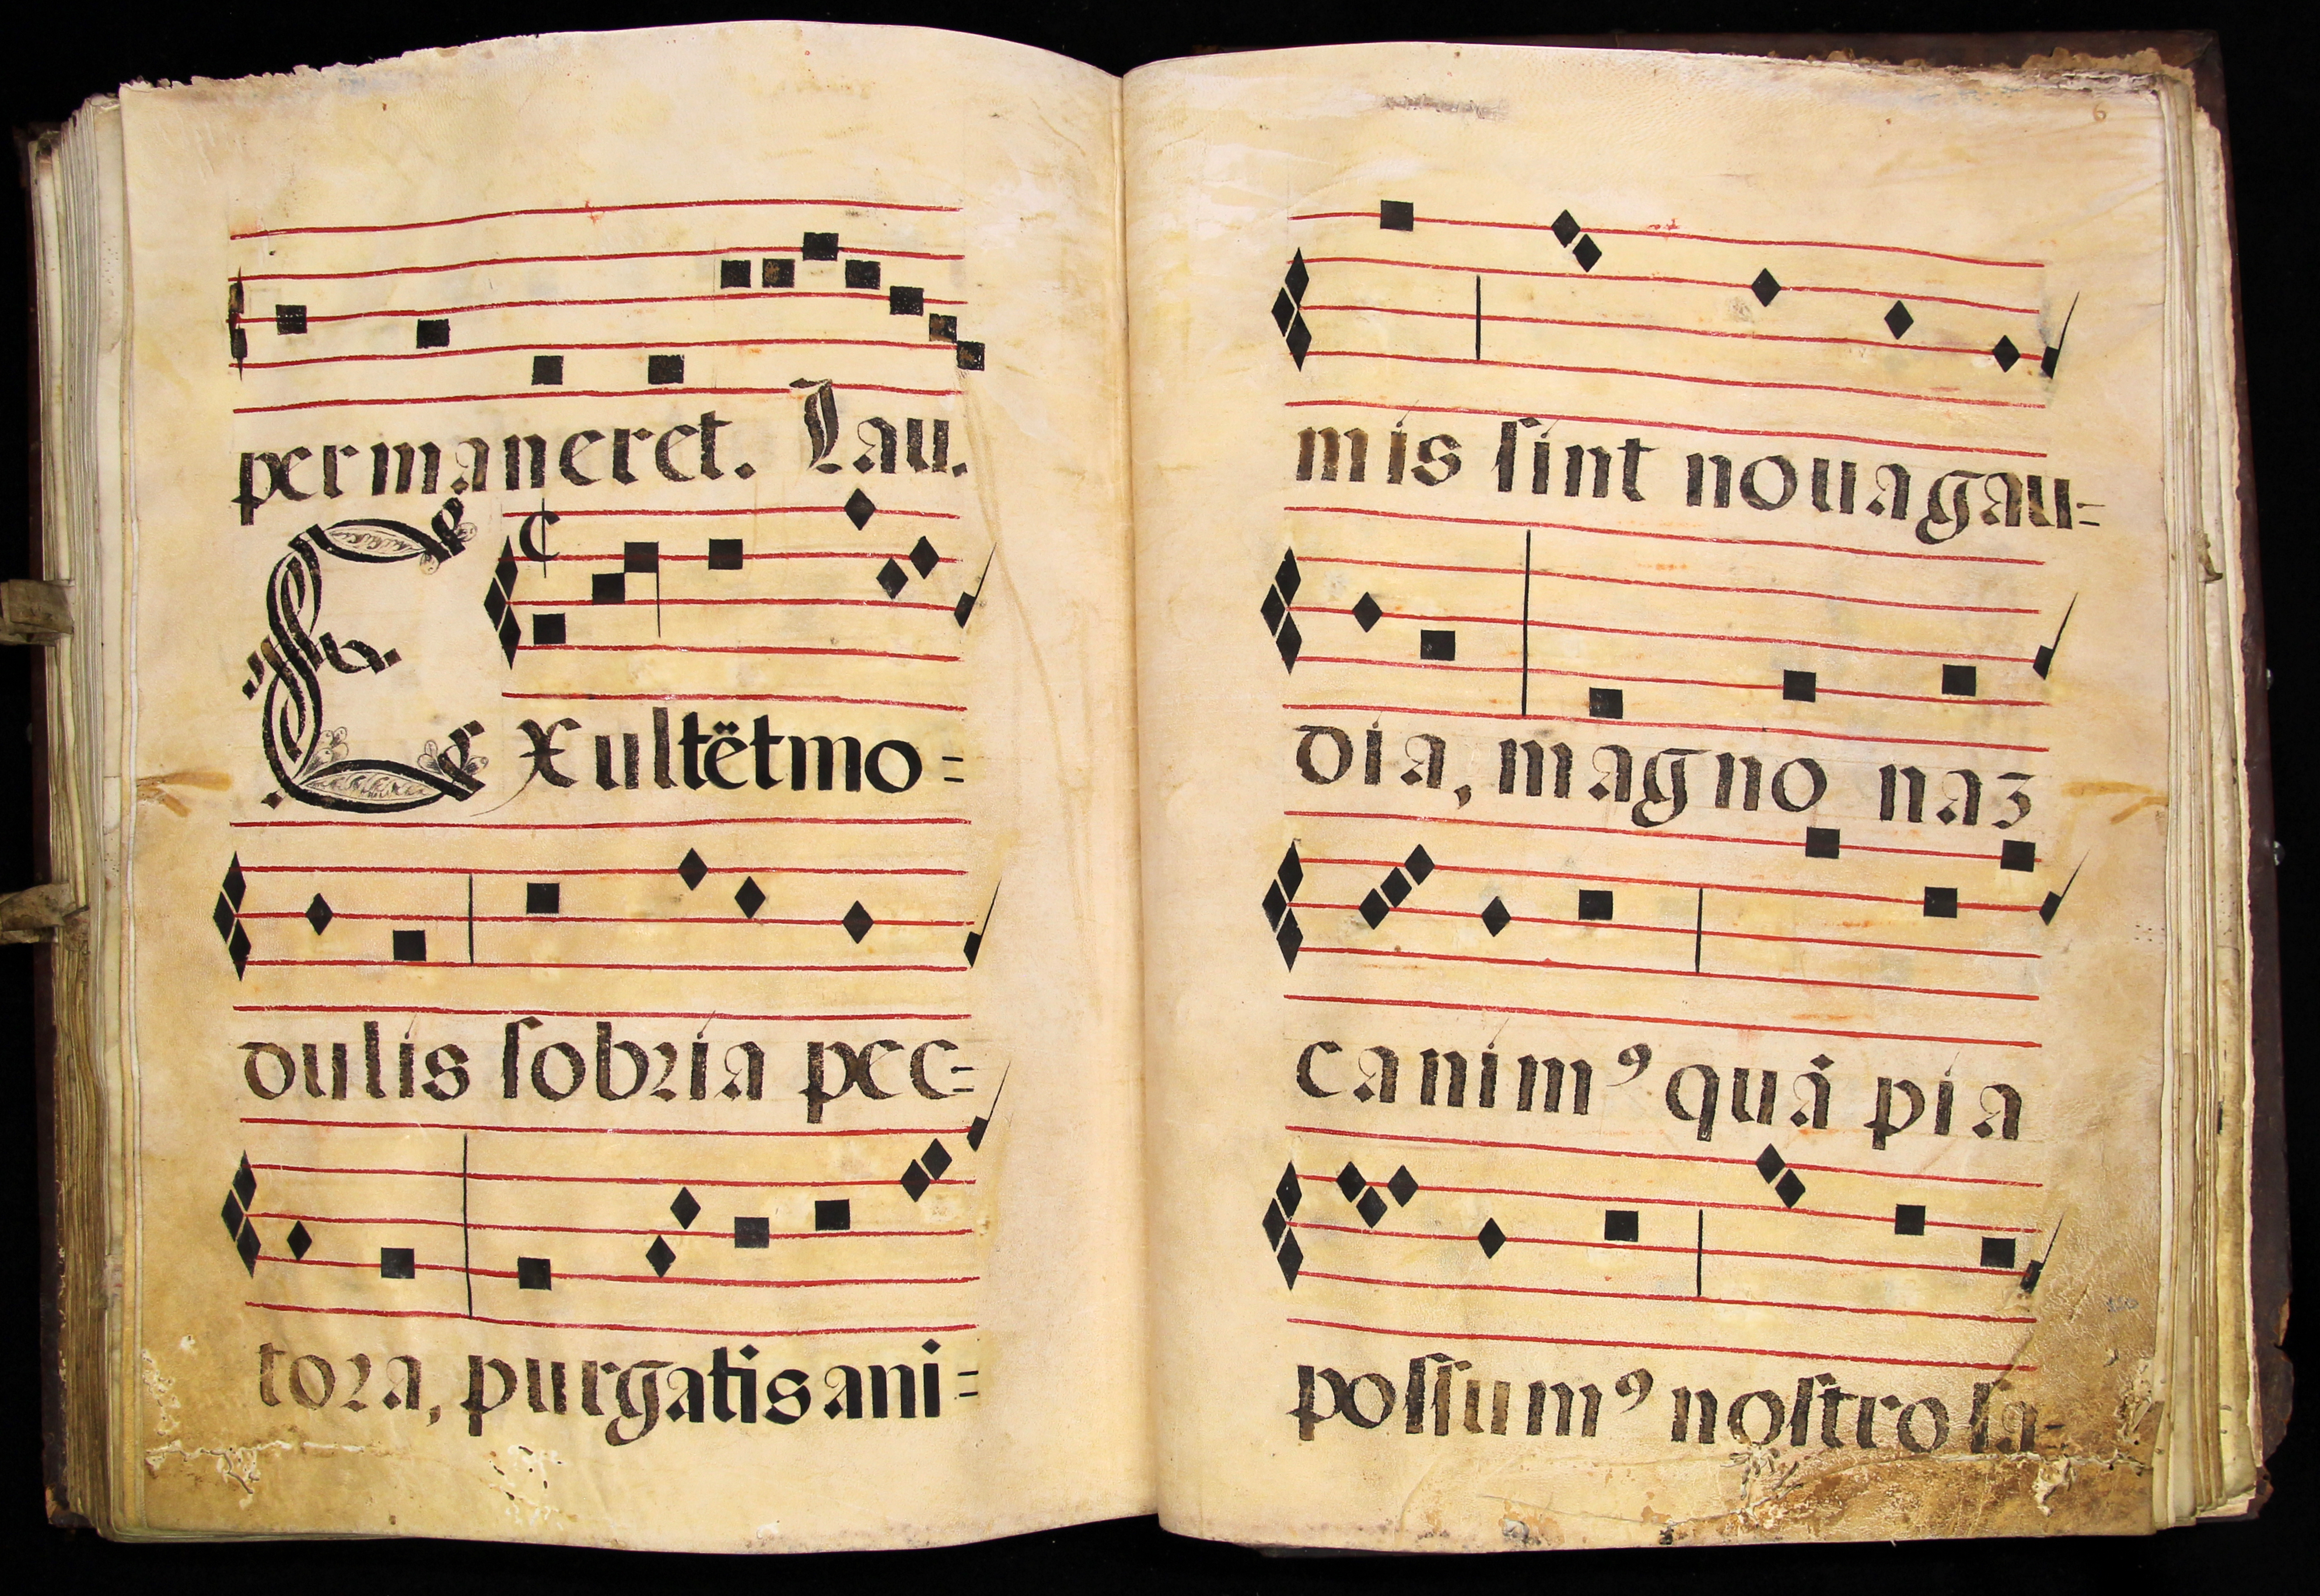 permaneret. Lau.
Exultët mo=
dulis ſobꝛia pec=
toꝛa, purgatis ani=
6
mis ſint noua gau=
dia, magno naʒ
canimꝰ quā pia
poſſumꝰ noſtro ſa=